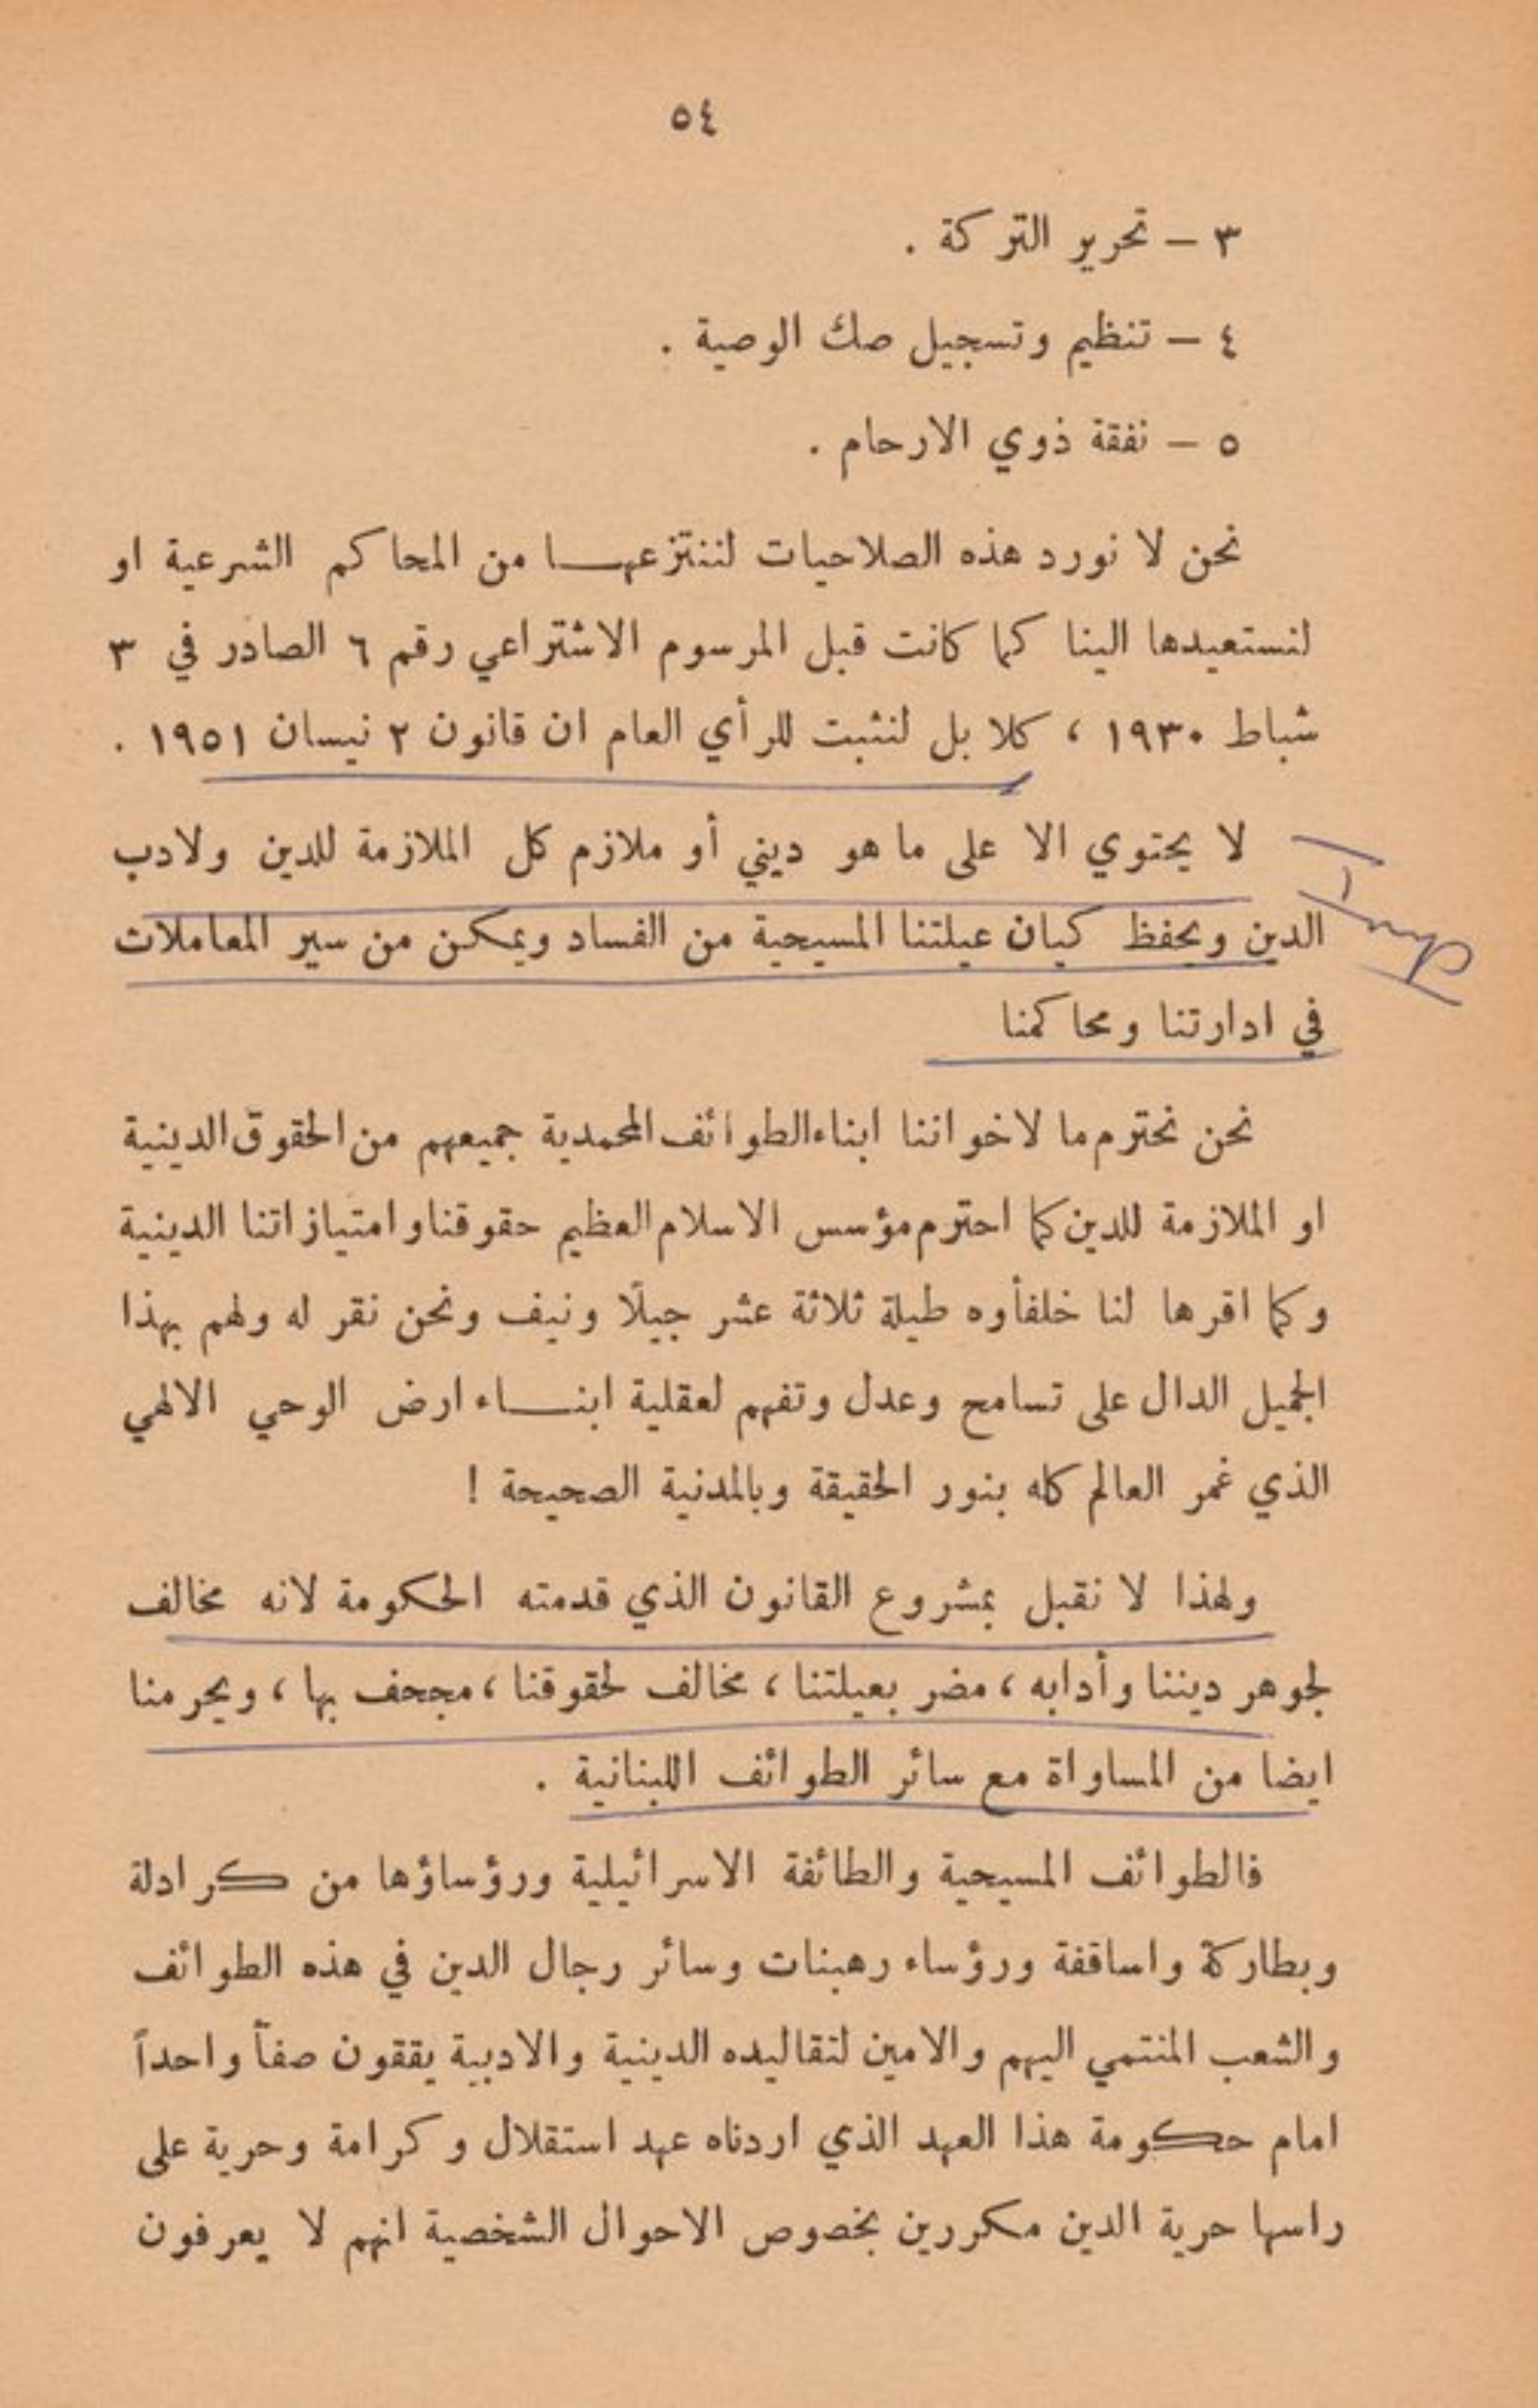 ٥٤
٣ – تحرير التركة .
٤ – تنظيم وتسجيل صك الوصية .
٥ – نفقة ذوي الارحام .
نحن لا نورد هذه الصلاحيات لننتزعهـــا من المحاكم الشرعية او
لنستعيدها الينا كما كانت قبل المرسوم الاشتراعي رقم ٦ الصادر في ٣
شباط ١٩٣٠ ، كلا بل لنثبت للرأي العام ان قانون ٢ نيسان ١٩٥١ .
لا يحتوي الا على ما هو ديني أو ملازم كل الملازمة للدين ولادب
الدين ويحفظ كيان عيلتنا المسيحية من الفساد ويمكن من سير المعاملات
في ادارتنا ومحاكمنا
نحن نحترم ما لاخواننا ابناء الطوائف المحمدية جميعهم من الحقوق الدينية
او الملازمة للدين كما احترم مؤسس الاسلام العظيم حقوقنا وامتيازاتنا الدينية
وكما اقرها لنا خلفأوه طيلة ثلاثة عشر جيلًا ونيف ونحن نقر له ولهم بهذا
الجميل الدال على تسامح وعدل وتفهم لعقلية ابنـــاء ارض الوحي الالهي
الذي غمر العالم كله بنور الحقيقة وبالمدنية الصحيحة !
ولهذا لا نقبل بمشروع القانون الذي قدمته الحكومة لانه مخالف
لجوهر ديننا وأدابه ، مضر بعيلتنا ، مخالف لحقوقنا ، مجحف بها ، ويحرمنا
ايضا من المساواة مع سائر الطوائف اللبنانية .
فالطوائف المسيحية والطائفة الاسرائيلية ورؤساؤها من كرادلة
وبطاركة واساقفة ورؤساء رهبنات وسائر رجال الدين في هذه الطوائف
والشعب المنتمي اليهم والامين لتقاليده الدينية والادبية يققون صفاً واحداً
امام حكومة هذا العهد الذي اردناه عهد استقلال وكرامة وحرية على
راسها حرية الدين مكررين بخصوص الاحوال الشخصية انهم لا يعرفون